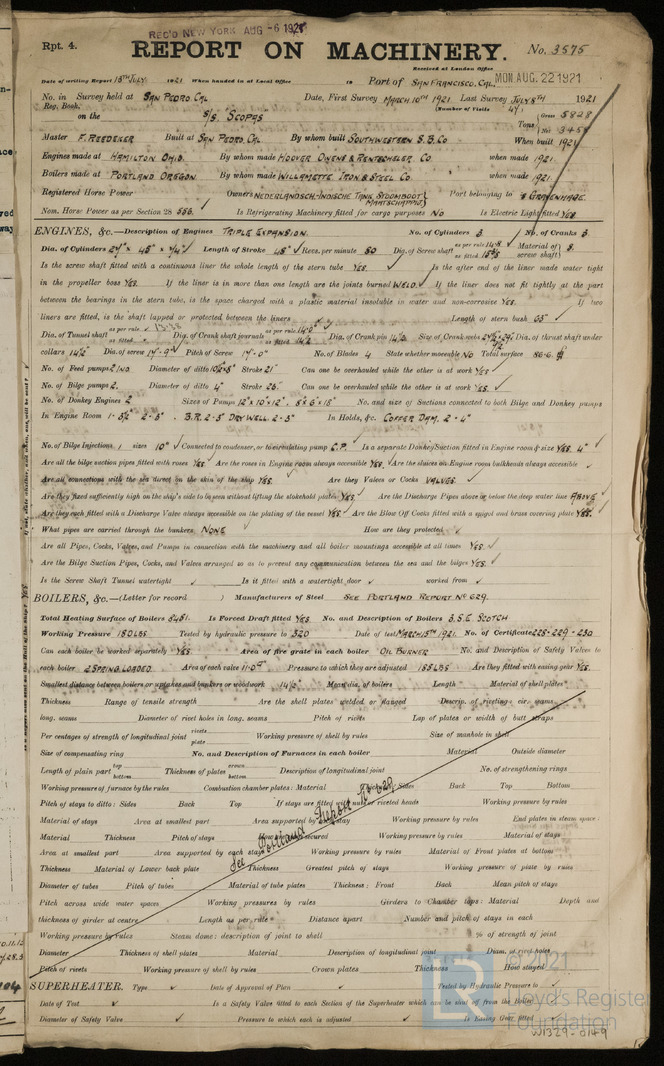 REC'D NEW YORK AUG -6 1921
Rpt. 4.
REPORT ON MACHINERY. No. 3575
Received at London Office MON AUG. 22 1921
Date of writing Report 15TH JULY 1921 When handed in at Local Office 19 Port of SAN FRANCISCO, CAL.
No. in Survey held at SAN PEDRO CAL Date, First Survey MARCH 10TH 1921 Last Survey JULY 8TH 1921
Reg. Book. (Number of Visits 47)
on the S/S. SCOPAS Tons Gross 5828
Net 3458
Master F. REEDEKER Built at SAN PEDRO. CAL By whom built SOUTHWESTERN S.B. CO When built 1921
Engines made at HAMILTON OHIO. By whom made HOOVER OWENS & RENTSCHLER CO when made 1921.
Boilers made at PORTLAND OREGON. By whom made WILLAMETTE IRON & STEEL CO. when made 1921.
Registered Horse Power Owners NEDERLANDSCH-INDISCHE TANK STOOMBOOT MAATSCHAPPIJ Port belonging to S GRAVENHAGE.
Nom. Horse Power as per Section 28 556. Is Refrigerating Machinery fitted for cargo purposes NO Is Electric Light fitted YES
ENGINES, &c.—Description of Engines TRIPLE EXPANSION. No. of Cylinders 3 No. of Cranks 3.
Dia. of Cylinders Length of Stroke 48" Revs. per minute 80 Dia. of Screw shaft as per rule 14.8 as fitted Material of screw shaft S.
Is the screw shaft fitted with a continuous liner the whole length of the stern tube YES. Is the after end of the liner made water tight
in the propeller boss YES. If the liner is in more than one length are the joints burned WELD. If the liner does not fit tightly at the part
between the bearings in the stern tube, is the space charged with a plastic material insoluble in water and non-corrosive YES. If two
liners are fitted, is the shaft lapped or protected between the liners Length of stern bush 65"
Dia. of Tunnel shaft as per rule 13.38 as fitted Dia. of Crank shaft journals as per rule 14.0" as fitted 14½ Dia. of Crank pin 14½ Size of Crank webs Dia. of thrust shaft under
collars 14½" Dia. of screw 17'-9" Pitch of Screw 17'-0" No. of Blades 4 State whether moveable NO Total surface 86.6
No. of Feed pumps 2 Diameter of ditto Stroke 21" Can one be overhauled while the other is at work YES
No. of Bilge pumps 2. Diameter of ditto 4" Stroke 26" Can one be overhauled while the other is at work YES.
No. of Donkey Engines 2 Sizes of Pumps 12"x10"x12" . 8"x6"x18" No. and size of Suctions connected to both Bilge and Donkey pumps
In Engine Room 1-5½" 2-3". B.R. 2-3" DRY WELL. 2-3" In Holds, &c. COFFER DAM. 2-4"
No. of Bilge Injections 1 sizes 10" Connected to condenser, or to circulating pump C.P. Is a separate Donkey Suction fitted in Engine room & size YES. 4"
Are all the bilge suction pipes fitted with roses YES. Are the roses in Engine room always accessible YES Are the sluices on Engine room bulkheads always accessible
Are all connections with the sea direct on the skin of the ship YES. Are they Valves or Cocks VALVES.
Are they fixed sufficiently high on the ship's side to be seen without lifting the stokehold plates YES. Are the Discharge Pipes above or below the deep water line ABOVE
Are they each fitted with a Discharge Valve always accessible on the plating of the vessel YES Are the Blow Off Cocks fitted with a spigot and brass covering plate YES.
What pipes are carried through the bunkers NONE How are they protected
Are all Pipes, Cocks, Valves, and Pumps in connection with the machinery and all boiler mountings accessible at all times YES.
Are the Bilge Suction Pipes, Cocks, and Valves arranged so as to prevent any communication between the sea and the bilges YES.
Is the Screw Shaft Tunnel watertight Is it fitted with a watertight door worked from
BOILERS, &c.—(Letter for record ) Manufacturers of Steel SEE PORTLAND REPORT NO 629.
Total Heating Surface of Boilers 8451. Is Forced Draft fitted YES No. and Description of Boilers 3. S.E. SCOTCH
Working Pressure 180 LBS Tested by hydraulic pressure to 320 Date of test MARCH 15TH 1921. No. of Certificate 228-229-230
Can each boiler be worked separately YES Area of fire grate in each boiler OIL BURNER No. and Description of Safety Valves to
each boiler 2 SPRING LOADED Area of each valve 11.0 Pressure to which they are adjusted 185 LBS Are they fitted with easing gear YES.
Smallest distance between boilers or uptakes and bunkers or woodwork 14½" Mean dia. of boilers Length Material of shell plates
Thickness Range of tensile strength Are the shell plates welded or flanged Descrip. of riveting: cir. seams
long. seams Diameter of rivet holes in long. seams Pitch of rivets Lap of plates or width of butt straps
Per centages of strength of longitudinal joint rivets plate Working pressure of shell by rules Size of manhole in shell
Size of compensating ring No. and Description of Furnaces in each boiler Material Outside diameter
Length of plain part top bottom Thickness of plates crown bottom Description of longitudinal joint No. of strengthening rings
Working pressure of furnace by the rules Combustion chamber plates: Material Thickness: Sides Back Top Bottom
Pitch of stays to ditto: Sides Back Top If stays are fitted with nuts or riveted heads Working pressure by rules
Material of stays Area at smallest part Area supported by each stay Working pressure by rules End plates in steam space:
Material Thickness Pitch of stays How are stays secured Working pressure by rules Material of stays
Area at smallest part Area supported by each stay Working pressure by rules Material of Front plates at bottom
Thickness Material of Lower back plate Thickness Greatest pitch of stays Working pressure of plate by rules
Diameter of tubes Pitch of tubes Material of tube plates Thickness: Front Back Mean pitch of stays
Pitch across wide water spaces Working pressures by rules Girders to Chamber tops: Material Depth and
thickness of girder at centre Length as per rule Distance apart Number and pitch of stays in each
Working pressure by rules Steam dome: description of joint to shell % of strength of joint
Diameter Thickness of shell plates Material Description of longitudinal joint Diam. of rivet holes
Pitch of rivets Working pressure of shell by rules Crown plates Thickness How stayed
See Portland Report No 629
SUPERHEATER. Type Date of Approval of Plan Tested by Hydraulic Pressure to
Date of Test Is a Safety Valve fitted to each Section of the Superheater which can be shut off from the Boiler
Diameter of Safety Valve Pressure to which each is adjusted Is Easing Gear fitted
© 2021
Lloyd's Register
Foundation
W1329-0149